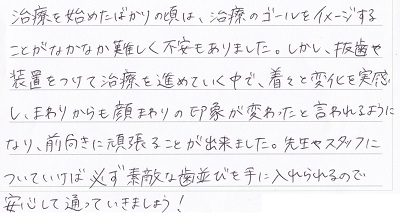 治療を始めたばかりの頃は、治療のゴールをイメージする
ことがなかなか難しく不安もありました。しかし、抜歯や
装置をつけて治療を進めていく中で、着々と変化を実感
し、まわりからも顔まわりの印象が変わったと言われるように
なり、前向きに頑張ることが出来ました。先生やスタッフに
ついていけば必ず素敵な歯並びを手に入れられるので
安心して通っていきましょう!